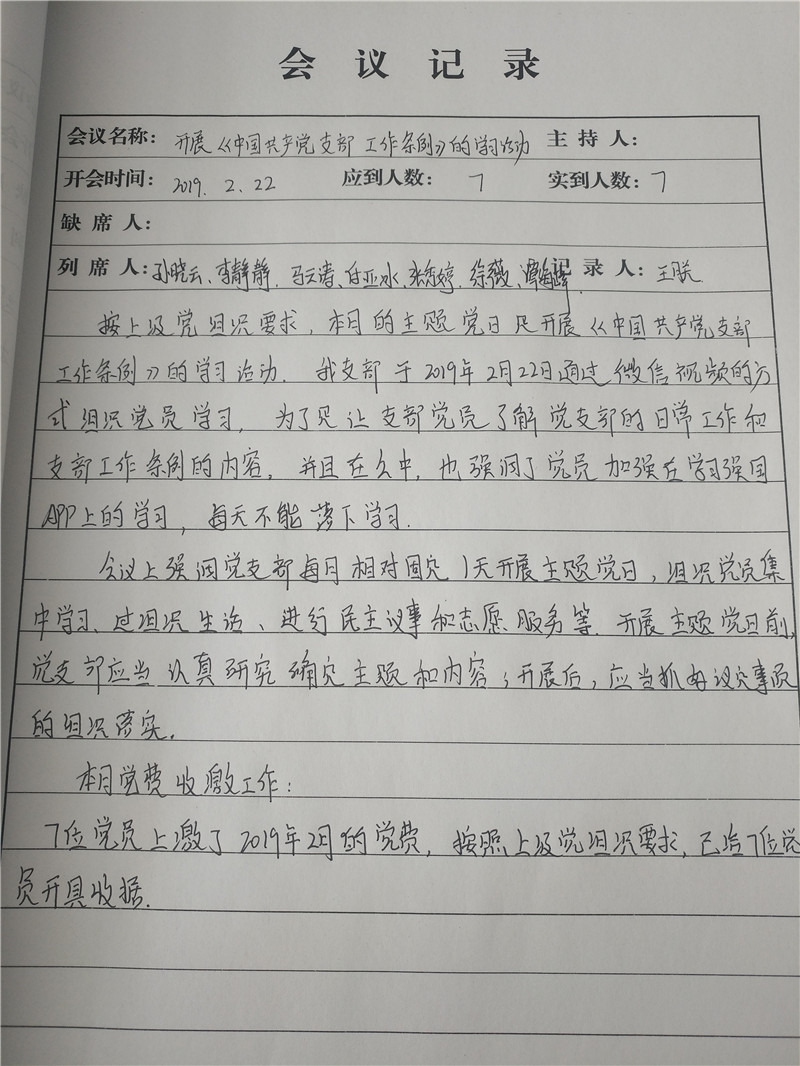 会议记录
会议名称： 开展《中国共产党支部工作条例》的学习活动 主持人：
开会时间： 2019. 2. 22 应到人数： 7 实到人数： 7
缺席人：
列席人：孙晓云、李静静、马云涛、白亚冰、张春婷、徐薇、 记录人：王朕
按上级党组织要求，本月的主题党日是开展《中国共产党支部
工作条例》的学习活动. 我支部于2019年2月22日通过微信视频的方
式组织党员学习，为了是让支部党员了解党支部的日常工作和
支部工作条例的内容，并且在会中，也强调了党员加强在学习强国
APP上的学习，每天不能落下学习.
会议上强调党支部每月相对固定1天开展主题党日，组织党员集
中学习、过组织生活、进行民主议事和志愿服务等. 开展主题党日前，
党支部应当认真研究确定主题和内容；开展后，应当抓好议定事项
的组织落实.
本月党费收缴工作：
7位党员上缴了2019年2月的党费，按照上级党组织要求，已给7位党
员开具收据.